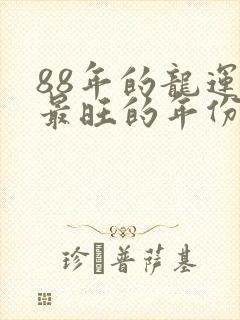 88年的龍運
最旺的年份
珍 普薩基